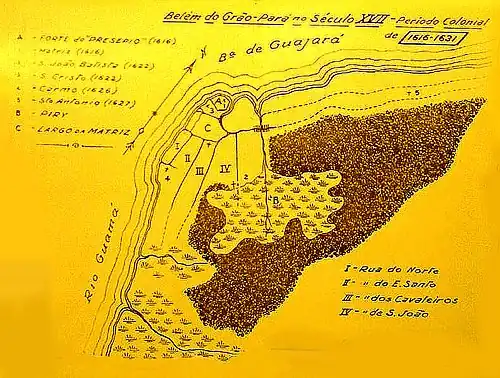 Belém do Grão-Pará no Século XVII - Período Colonial
de 1616-1631
A - FORTE do "PRESEPIO" (1616)
1 - Matriz (1616)
2 - S. João Batista (1622)
3 - S. Cristo (1622)
4 - Carmo (1626)
5 - Sto Antonio (1627)
B - PIRY
C - LARGO da MATRIZ
Bª de Guajará
Rio Guamá
A
1
3
C
I
II
III
IV
4
2
B
+5
I - Rua do Norte
II - " do E. Santo
III - " dos Cavaleiros
IV - " de S. João